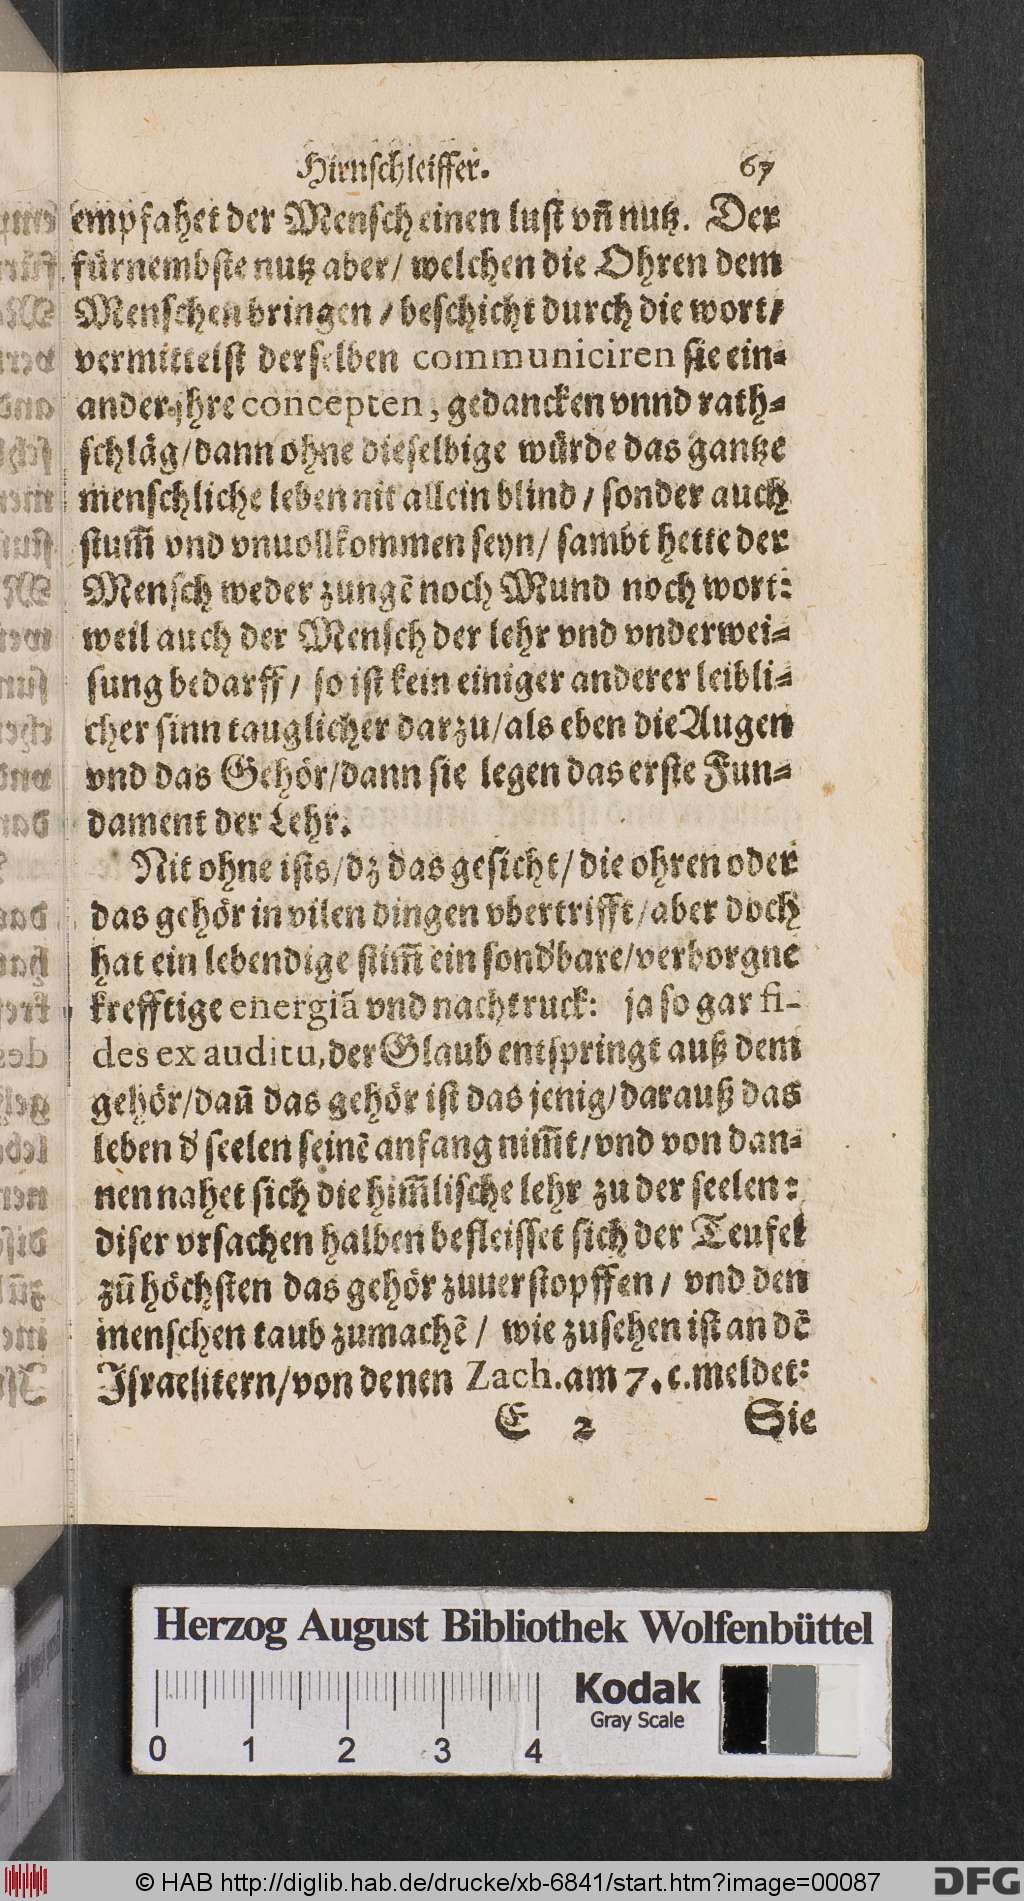 Hirnschleiffer. 67
empfahet der Mensch einen lust vñ nutz. Der
fürnembste nutz aber/ welchen die Ohren dem
Menschen bringen / beschicht durch die wort/
vermittelst derselben communiciren sie ein-
ander jhre concepten, gedancken vnnd rath-
schläg/dann ohne dieselbige würde das gantze
menschliche leben nit allein blind / sonder auch
stum̃ vnd vnuollkommen seyn/ sambt hette der
Mensch weder zungẽ noch Mund noch wort:
weil auch der Mensch der lehr vnd vnderwei-
sung bedarff/ so ist kein einiger anderer leibli-
cher sinn tauglicher darzu/als eben die Augen
vnd das Gehör/dann sie legen das erste Fun-
dament der Lehr.
Nit ohne ists/dz das gesicht/ die ohren oder
das gehör in vilen dingen vbertrifft/aber doch
hat ein lebendige stim̃ ein sond'bare/verborgne
krefftige energiã vnd nachtruck: ja so gar fi-
des ex auditu, der Glaub entspringt auß dem
gehör/dañ das gehör ist das jenig/darauß das
leben d' seelen seinẽ anfang nim̃t/vnd von dan-
nen nahet sich die him̃lische lehr zu der seelen:
diser vrsachen halben befleisset sich der Teufel
zũ höchsten das gehör zuuerstopffen/ vnd den
menschen taub zumachẽ / wie zusehen ist an dẽ
Israelitern/von denen Zach. am 7. c. meldet:
E 2 Sie
Herzog August Bibliothek Wolfenbüttel
Kodak
Gray Scale
0 1 2 3 4
© HAB http://diglib.hab.de/drucke/xb-6841/start.htm?image=00087
DFG